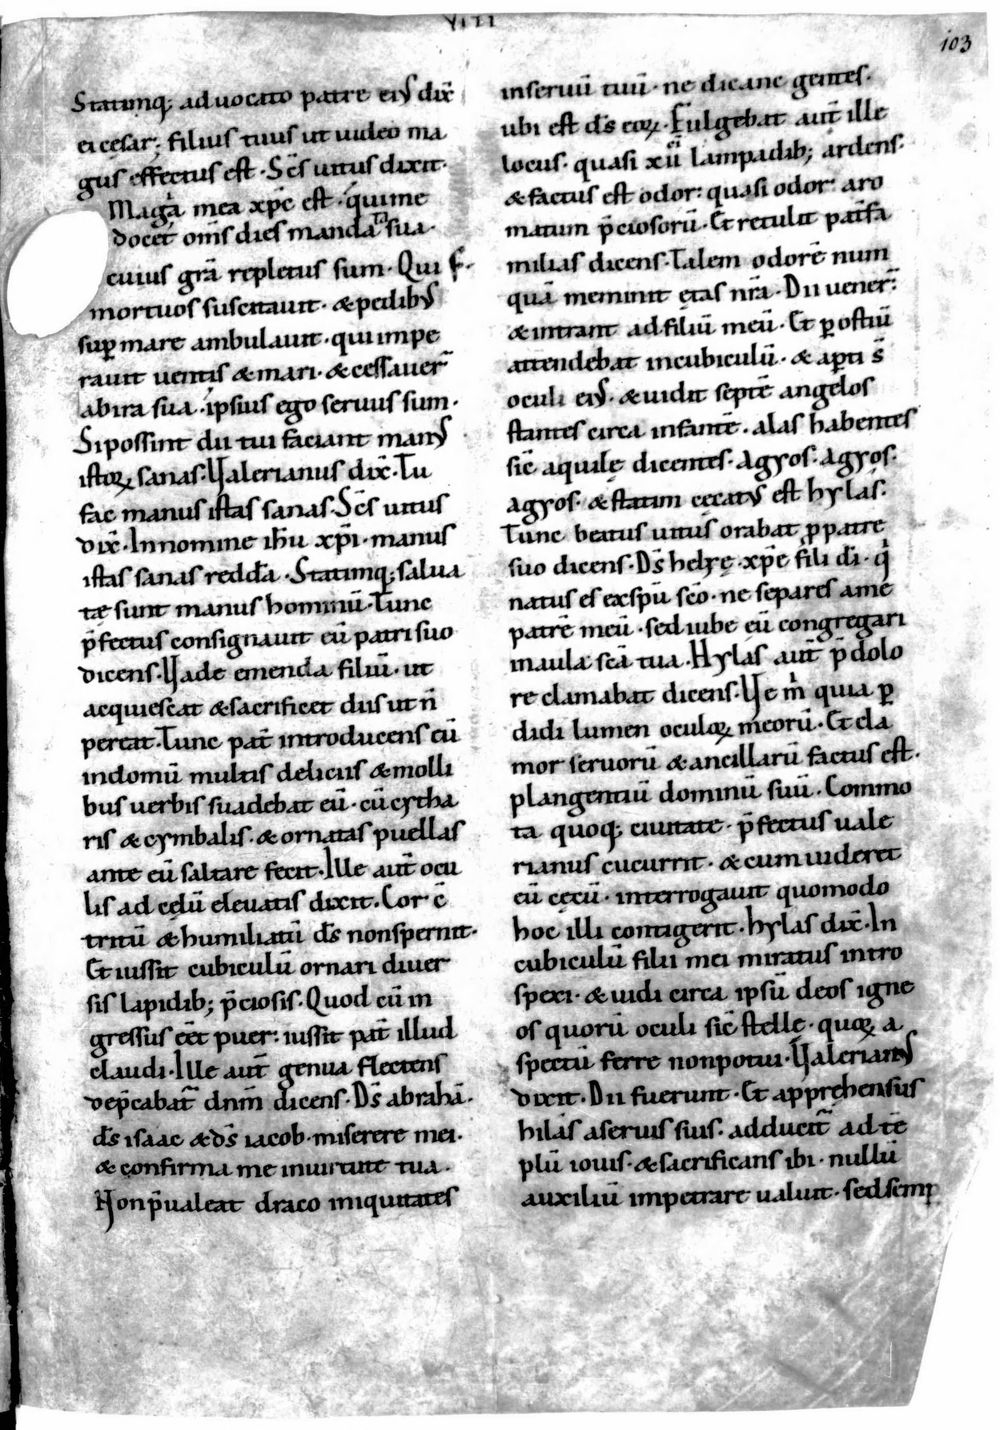 VIII
103
Statimq; advocato patre ei᷒ dix̄
ei cęsar; filius tuus ut uideo ma
gus effectus est. Sc̄s uitus dixit.
Maga mea xp̄c est. qui me
docet om̄s dies mandata sua.
cuius grā repletus sum. Qui
mortuos suscitauit. & pedib᷒
sup̱ mare ambulauit. qui impe
rauit uentis & mari. & cessauer̄
ab ira sua. ipsius ego seruus sum.
Si possint dii tui faciant man᷒
istoꝝ sanas. Valerianus dix̄. Tu
fac manus istas sanas. Sc̄s uitus
dix̄. In nomine ih̄u xp̄i. manus
istas sanas reddā. Statimq; salua
tæ sunt manus hominū. Tunc
p̄fectus consignauit eū patri suo
dicens. Vade emenda filiū. ut
acquiescat & sacrificet diis ut n̄
pereat. Tunc pat̄ introducens eū
in domū multis deliciis & molli
bus uerbis suadebat eū. cū cytha
ris & cymbalis. & ornatas puellas
ante eū saltare fecit. Ille aut̄ ocu
lis ad cęlū eleuatis dixit. Cor c̄
tritū & humiliatū d̄s non spernit.
Et iussit cubiculū ornari diuer
sis lapidib; p̄ciosis. Quod cū in
gressus eēt puer: iussit pat̄ illud
claudi. Ille aut̄ genua flectens
dep̄cabat᷑ dn̄m dicens. D̄s abrahā.
d̄s isaac & d̄s iacob. miserere mei.
& confirma me in uirtute tua.
Non p̄ualeat draco iniquitates
in seruū tuū. ne dicant gentes.
ubi est d̄s eoꝝ. Fulgebat aut̄ ille
locus. quasi xii lampadib; ardens.
& factus est odor: quasi odor aro
matum p̄ciosorū. Et retulit pat̄ fa
milias dicens. Talem odorē num
quā meminit ętas nr̄a. Dii uener̄
& intrant ad filiū meū. Et ꝑ ostiū
attendebat in cubiculū. & aꝑti s̄
oculi ei᷒. & uidit septē angelos
stantes circa infantē. alas habentes
sic̄ aquilę dicentes. Agyos. agyos.
agyos. & statim cęcat᷒ est hylas.
Tunc beatus uitus orabat ꝓ patre
suo dicens. D̄s helye. xp̄e fili dī. q̇
natus es ex sp̄u sc̄o. ne separes a me
patrē meū. sed iube eū congregari
in aula sc̄a tua. Hylas aut̄ p̄ dolo
re clamabat dicens. Ve m̄ quia ꝑ
didi lumen oculoꝝ meorū. Et cla
mor seruorū & ancillarū factus est.
plangentiū dominū suū. Commo
ta quoq; ciuitate. p̄fectus uale
rianus cucurrit. & cum uideret
eū cęcū. interrogauit quomodo
hoc illi contigerit. hylas dix̄. In
cubiculū filii mei miratus intro
spexi. & uidi circa ipsū deos igne
os quorū oculi sic̄ stellę. quoꝝ a
spectū ferre non potui. Valerian᷒
dixit. Dii fuerunt. Et apprehensus
hilas a seruis suis. adducit᷑ ad tē
plū iouis. & sacrificans ibi. nullū
auxiliū impetrare ualuit. sed semꝑ